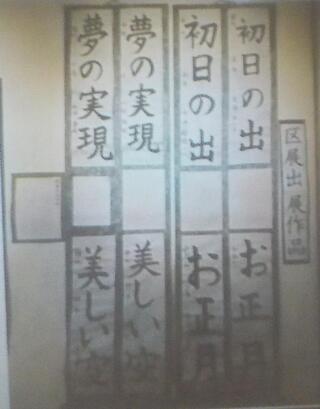 区展出展作品
初日の出
初日の出
夢の実現
夢の実現
お正月
お正月
美しい空
美しい空